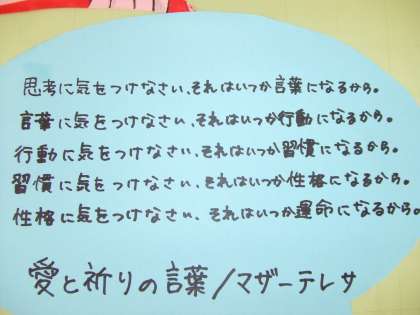 思考に気をつけなさい、それはいつか言葉になるから。
言葉に気をつけなさい、それはいつか行動になるから。
行動に気をつけなさい、それはいつか習慣になるから。
習慣に気をつけなさい、それはいつか性格になるから。
性格に気をつけなさい、それはいつか運命になるから。
愛と祈りの言葉/マザーテレサ